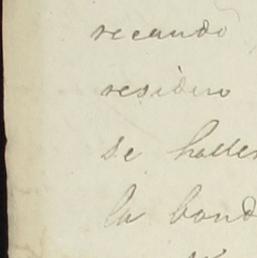 recando
residiro
se halle
la bond